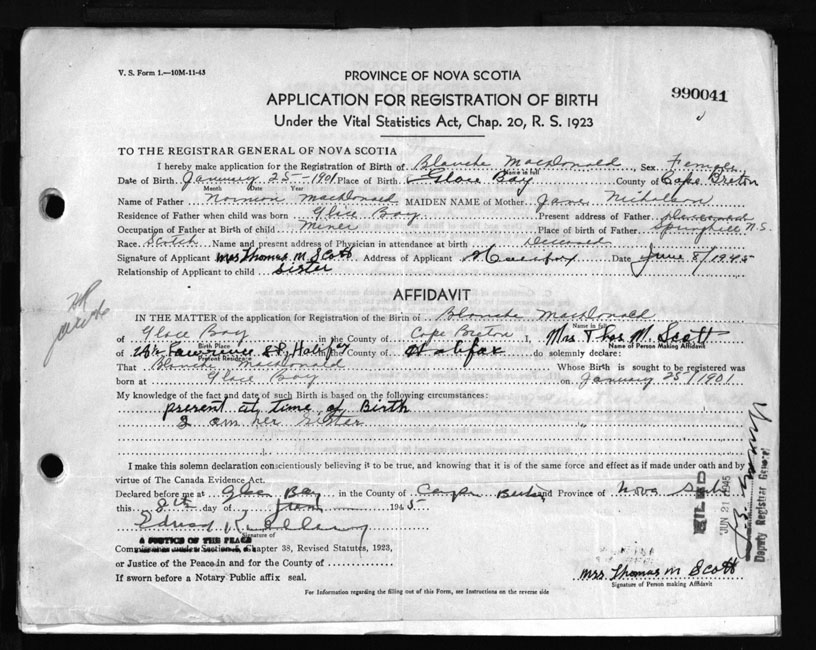 V. S. Form 1.—10M-11-43
PROVINCE OF NOVA SCOTIA
990041
APPLICATION FOR REGISTRATION OF BIRTH
Under the Vital Statistics Act, Chap. 20, R. S. 1923
TO THE REGISTRAR GENERAL OF NOVA SCOTIA
I hereby make application for the Registration of Birth of Blanche MacDonald Sex Female
Name in full
Date of Birth January 25-1901 Place of Birth Glace Bay County of Cape Breton
Month Date Year
Name of Father Norman MacDonald MAIDEN NAME of Mother Jane Nicholson
Residence of Father when child was born Glace Bay Present address of Father deceased
Occupation of Father at Birth of child Miner Place of birth of Father Springhill N.S.
Race Scotch Name and present address of Physician in attendance at birth Deceased
Signature of Applicant Mrs Thomas M. Scott Address of Applicant Halifax Date June 8/1945
Relationship of Applicant to child Sister
AFFIDAVIT
IN THE MATTER of the application for Registration of the Birth of Blanche MacDonald
Name in full
of Glace Bay in the County of Cape Breton I, Mrs Thos M. Scott
Birth Place
Name of Person Making Affidavit
of Lawrence St, Halifax the County of Halifax do solemnly declare:
Present Residence
That Blanche MacDonald Whose Birth is sought to be registered was
born at Glace Bay on January 25/1901
My knowledge of the fact and date of such Birth is based on the following circumstances:
present at time of Birth
I am her sister
I make this solemn declaration conscientiously believing it to be true, and knowing that it is of the same force and effect as if made under oath and by
virtue of The Canada Evidence Act.
Declared before me at Glace Bay in the County of Cape Breton and Province of Nova Scotia
this 8th day of June 1945
Signature of
A JUSTICE OF THE PEACE
Commissioner under Section 5, Chapter 38, Revised Statutes, 1923,
or Justice of the Peace in and for the County of
If sworn before a Notary Public affix seal.
Mrs. Thomas M Scott
Signature of Person making Affidavit
For Information regarding the filling out of this Form, see Instructions on the reverse side
FILED
JUN 21 1945
Deputy Registrar General